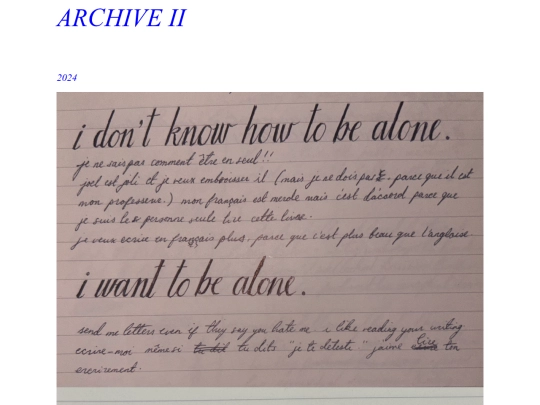 ARCHIVE II
2024
i don't know how to be alone.
je ne sais pas comment être en seul!!
joel est joli et je veux embrasser il (mais je ne dois pas, parce que il est
mon professeur.) mon français est merde mais c'est d'accord parce que
je suis le personne seule lire cette livre.
je veux ecrire en français plus, parce que c'est plus beau que l'anglaise.
i want to be alone.
send me letters even if they say you hate me. i like reading your writing
ecrire-moi même si tu dit tu dits "je te déteste" j'aime ton
ecrirement.